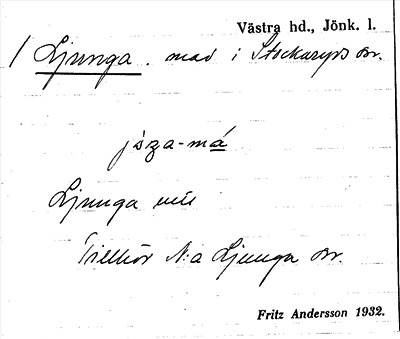 Västra hd., Jönk. l.
/ Ljunga. mad i Stockaryds sn.
jsza-má
Ljunga
Tillhör N:a Ljunga sn.
Fritz Andersson 1932.